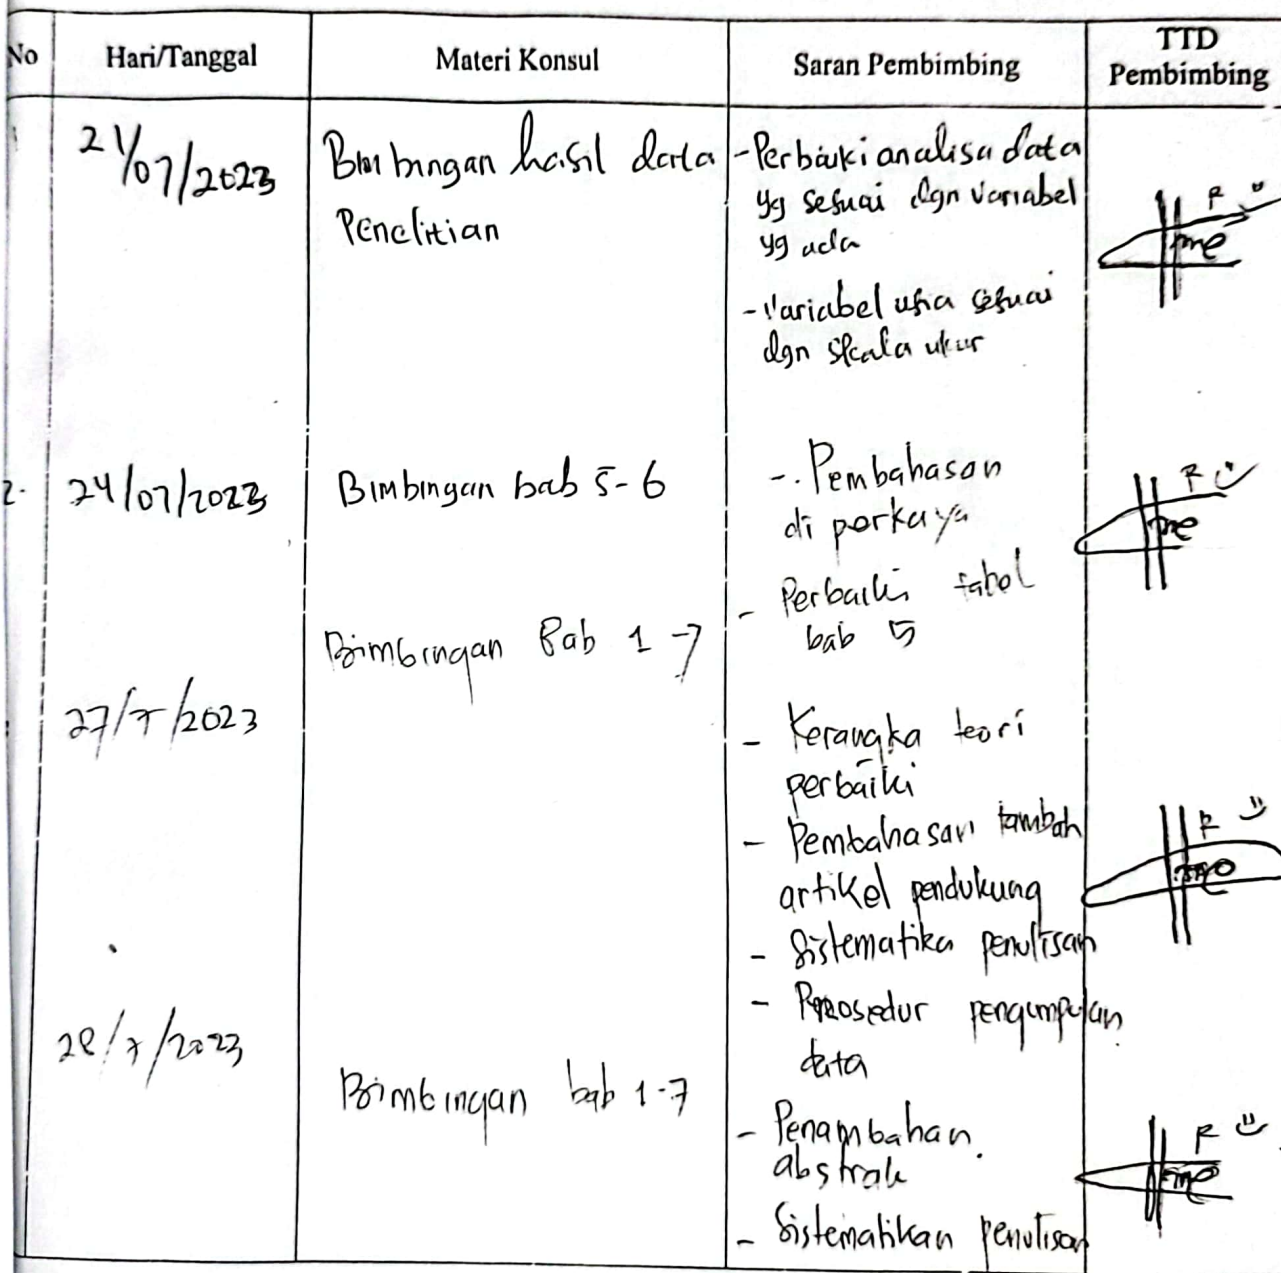 No Hari/Tanggal Materi Konsul Saran Pembimbing TTD
Pembimbing
21/07/2023 Bimbingan hasil data - Perbaiki analisa data
Penelitian yg sesuai dgn variabel
yg ada
- Variabel usia sesuai
dgn skala ukur
2. 24/07/2023 Bimbingan bab 5-6 -. Pembahasan
di perkaya
- Perbaiki tabel
bab 5
Bimbingan Bab 1-7
27/7/2023 - Kerangka teori
perbaiki
- Pembahasan tambah
artikel pendukung
- Sistematika penulisan
- Prosedur pengumpulan
data
28/7/2023 Bimbingan bab 1-7
- Penambahan
abstrak
- Sistematikan penulisan